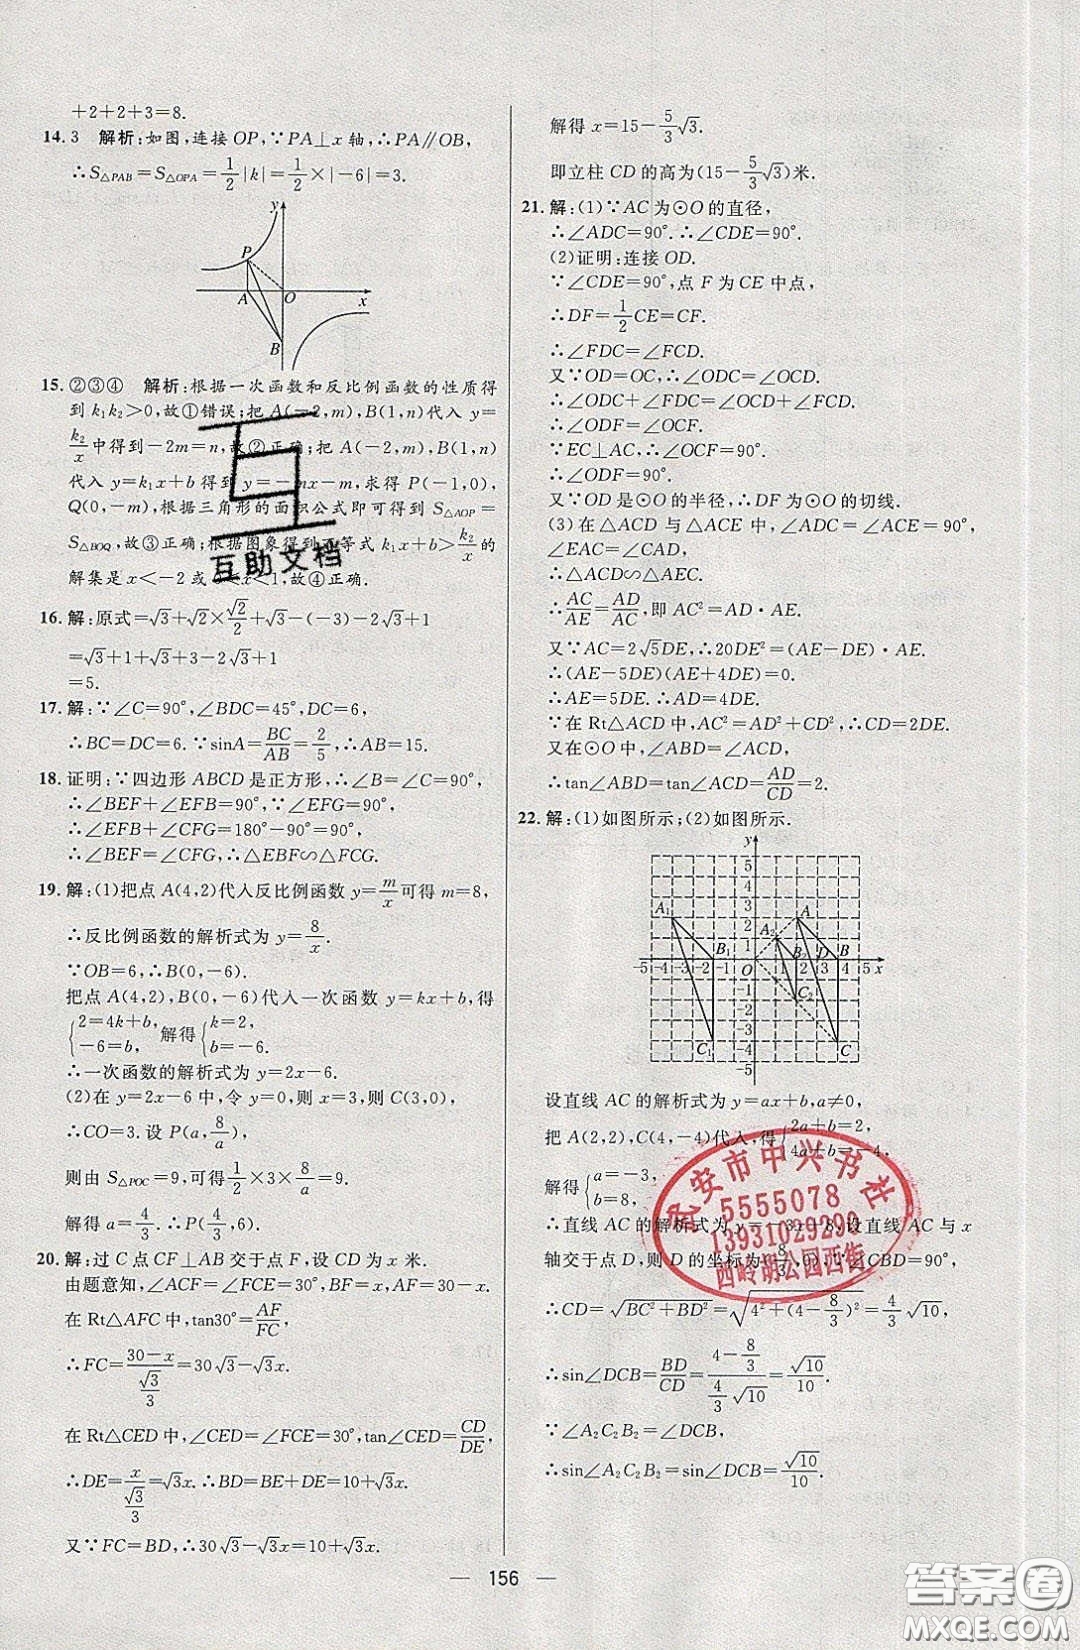 +2+2+3=8.
14. 3 解析:如图,连接 OP,∵PA⊥x 轴,∴PA∥OB,
∴S△PAB=S△OPA=1/2|k|=1/2×|-6|=3.
y
P
A O x
B
15. ②③④ 解析:根据一次函数和反比例函数的性质得
到 k₁k₂>0,故①错误;把 A(-2,m),B(1,n)代入 y=
k₂/x 中得到-2m=n,故②正确;把 A(-2,m),B(1,n)
代入 y=k₁x+b 得到 y=-mx-m,求得 P(-1,0),
Q(0,-m),根据三角形的面积公式即可得到 S△AOP=
S△BOQ,故③正确;根据图象得到不等式 k₁x+b>k₂/x 的
解集是 x<-2 或 0<x<1,故④正确.
16. 解:原式=√3+√2×√2/2+√3-(-3)-2√3+1
=√3+1+√3+3-2√3+1
=5.
17. 解:∵∠C=90°,∠BDC=45°,DC=6,
∴BC=DC=6.∵sinA=BC/AB=2/5,∴AB=15.
18. 证明:∵四边形 ABCD 是正方形,∴∠B=∠C=90°,
∴∠BEF+∠EFB=90°,∵∠EFG=90°,
∴∠BFE+∠CFG=180°-90°=90°,
∴∠BEF=∠CFG,∴△EBF∽△FCG.
19. 解:(1)把点 A(4,2)代入反比例函数 y=m/x可得 m=8,
∴反比例函数的解析式为 y=8/x.
∵OB=6,∴B(0,-6).
把点 A(4,2),B(0,-6)代入一次函数 y=kx+b,得
{2=4k+b, -6=b, 解得{k=2, b=-6.
∴一次函数的解析式为 y=2x-6.
(2)在 y=2x-6 中,令 y=0,则 x=3,即 C(3,0),
∴CO=3.设 P(a,8/a),
则由 S△POC=9,可得1/2×3×8/a=9.
解得 a=4/3.∴P(4/3,6).
20. 解:过 C 点 CF⊥AB 交于点 F,设 CD 为 x 米.
由题意知,∠ACF=∠FCE=30°,BF=x,AF=30-x.
在 Rt△AFC 中,tan30°=AF/FC,
∴FC=(30-x)/(√3/3)=30√3-√3x.
在 Rt△CED 中,∠CED=∠FCE=30°,tan∠CED=CD/DE,
∴DE=x/(√3/3)=√3x.∴BD=BE+DE=10+√3x.
又∵FC=BD,∴30√3-√3x=10+√3x.
解得 x=15-5/3√3.
即立柱 CD 的高为(15-5/3√3)米.
21. 解:(1)∵AC 为⊙O 的直径,
∴∠ADC=90°.∴∠CDE=90°.
(2)证明:连接 OD.
∵∠CDE=90°,点 F 为 CE 中点,
∴DF=1/2CE=CF.
∴∠FDC=∠FCD.
又∵OD=OC,∴∠ODC=∠OCD.
∴∠ODC+∠FDC=∠OCD+∠FCD.
∴∠ODF=∠OCF.
∵EC⊥AC,∴∠OCF=90°.
∴∠ODF=90°.
又∵OD 是⊙O 的半径,∴DF 为⊙O 的切线.
(3)在△ACD 与△ACE 中,∠ADC=∠ACE=90°,
∠EAC=∠CAD,
∴△ACD∽△AEC.
∴AC/AE=AD/AC,即 AC²=AD·AE.
又∵AC=2√5DE,∴20DE²=(AE-DE)·AE.
∴(AE-5DE)(AE+4DE)=0.
∴AE=5DE.∴AD=4DE.
∵在 Rt△ACD 中,AC²=AD²+CD²,∴CD=2DE.
又在⊙O 中,∠ABD=∠ACD,
∴tan∠ABD=tan∠ACD=AD/CD=2.
22. 解:(1)如图所示;(2)如图所示.
y
5
4
3
A₁ 2 A
1 A₂
B₁ B₂ D B
-5 -4 -3 -2 -1 O 1 2 3 4 5 x
-1
-2 C₂
-3
C₁ -4 C
-5
设直线 AC 的解析式为 y=ax+b,a≠0,
把 A(2,2),C(4,-4)代入,得{2a+b=2, 4a+b=-4.
解得{a=-3, b=8,
∴直线 AC 的解析式为 y=-3x+8,设直线 AC 与 x
轴交于点 D,则 D 的坐标为(8/3,0),∠CBD=90°,
∴CD=√(BC²+BD²)=√(4²+(4-8/3)²)=4/3√10,
∴sin∠DCB=BD/CD=(4-8/3)/(4/3√10)=√10/10.
∵∠A₂C₂B₂=∠DCB,
∴sin∠A₂C₂B₂=sin∠DCB=√10/10.
互助文档
武安市中兴书社
5555078
13931029290
西岭胡公园西街
156
答案圈
MXQE.COM